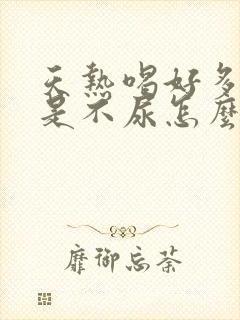 天熱喝好多
是不尿怎麼
靡御忘荼